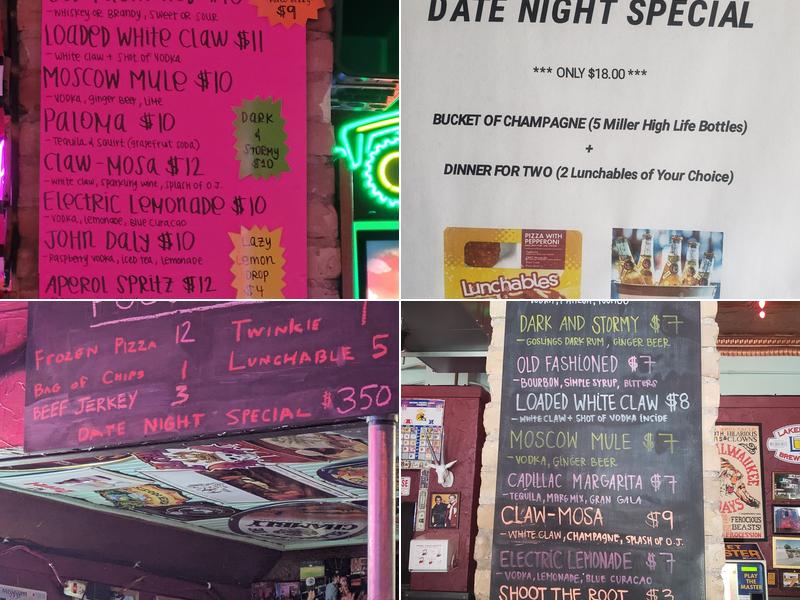 - WHISKEY OR BRANDY, SWEET OR SOUR
$9
LOADED WHITE CLAW $11
- WHITE CLAW + SHOT OF VODKA
MOSCOW MULE $10
- VODKA, GINGER BEER, LIME
PALOMA $10
- TEQUILA & SQUIRT (GRAPEFRUIT SODA)
DARK
&
STORMY
$10
CLAW-MOSA $12
- WHITE CLAW, SPARKLING WINE, SPLASH OF O.J.
ELECTRIC LEMONADE $10
- VODKA, LEMONADE, BLUE CURACAO
JOHN DALY $10
- RASPBERRY VODKA, ICED TEA, LEMONADE
LAZY
LEMON
DROP
$4
APEROL SPRITZ $12
DATE NIGHT SPECIAL
*** ONLY $18.00 ***
BUCKET OF CHAMPAGNE (5 Miller High Life Bottles)
+
DINNER FOR TWO (2 Lunchables of Your Choice)
PIZZA WITH
PEPPERONI
Lunchables
FROZEN PIZZA 12
BAG OF CHIPS 1
BEEF JERKEY 3
TWINKIE 1
LUNCHABLE 5
DATE NIGHT SPECIAL $350
DARK AND STORMY $7
- GOSLINGS DARK RUM, GINGER BEER
OLD FASHIONED $7
- BOURBON, SIMPLE SYRUP, BITTERS
LOADED WHITE CLAW $8
- WHITE CLAW + SHOT OF VODKA INSIDE
MOSCOW MULE $7
- VODKA, GINGER BEER
CADILLAC MARGARITA $7
- TEQUILA, MARG MIX, GRAN GALA
CLAW-MOSA $9
- WHITE CLAW, CHAMPAGNE, SPLASH OF O.J.
ELECTRIC LEMONADE $7
- VODKA, LEMONADE, BLUE CURACAO
SHOOT THE ROOT $3
HILARIOUS
CLOWNS
FEROCIOUS
BEASTS
PLAY
THE
MASTER